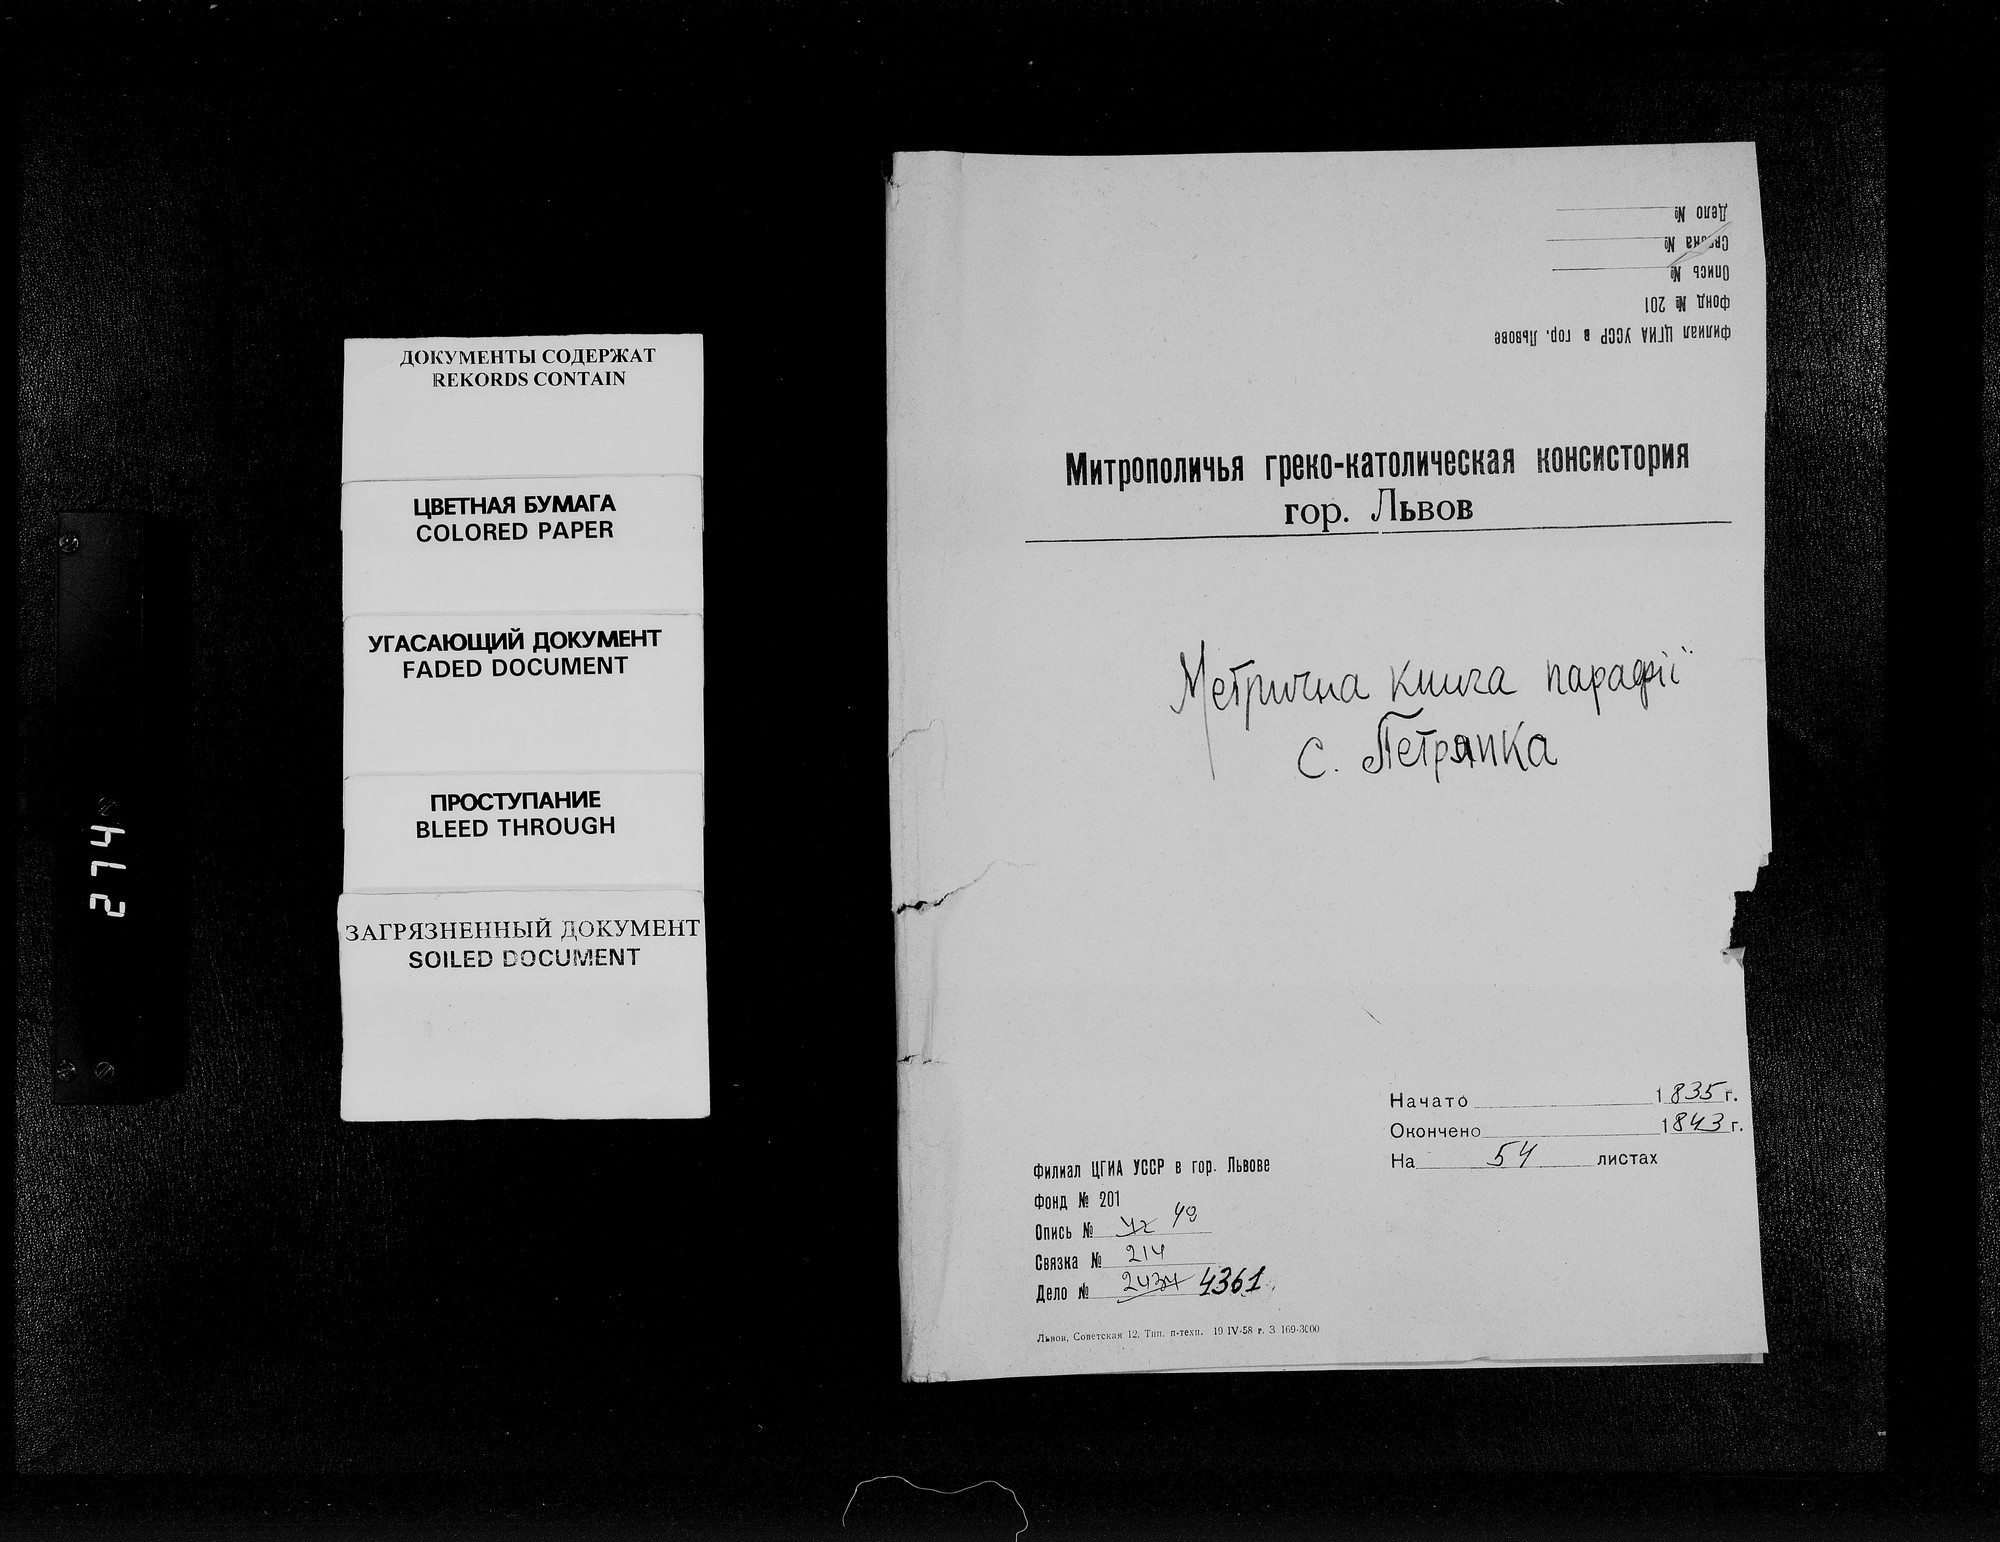 ДОКУМЕНТЫ СОДЕРЖАТ
REKORDS CONTAIN
ЦВЕТНАЯ БУМАГА
COLORED PAPER
УГАСАЮЩИЙ ДОКУМЕНТ
FADED DOCUMENT
ПРОСТУПАНИЕ
BLEED THROUGH
ЗАГРЯЗНЕННЫЙ ДОКУМЕНТ
SOILED DOCUMENT
274
Филиал ЦГИА УССР в гор. Львове
Фонд № 201
Опись №
Связка №
Дело №
Митрополичья греко-католическая консистория
гор. Львов
Метрична книга парафії
с. Петранка
Начато 1835 г.
Окончено 1843 г.
На 54 листах
Филиал ЦГИА УССР в гор. Львове
Фонд № 201
Опись №
Связка № 214
Дело № 4361
Львов, Советская 12, Тип. п-техн. 19 IV-58 г. З 169-3000